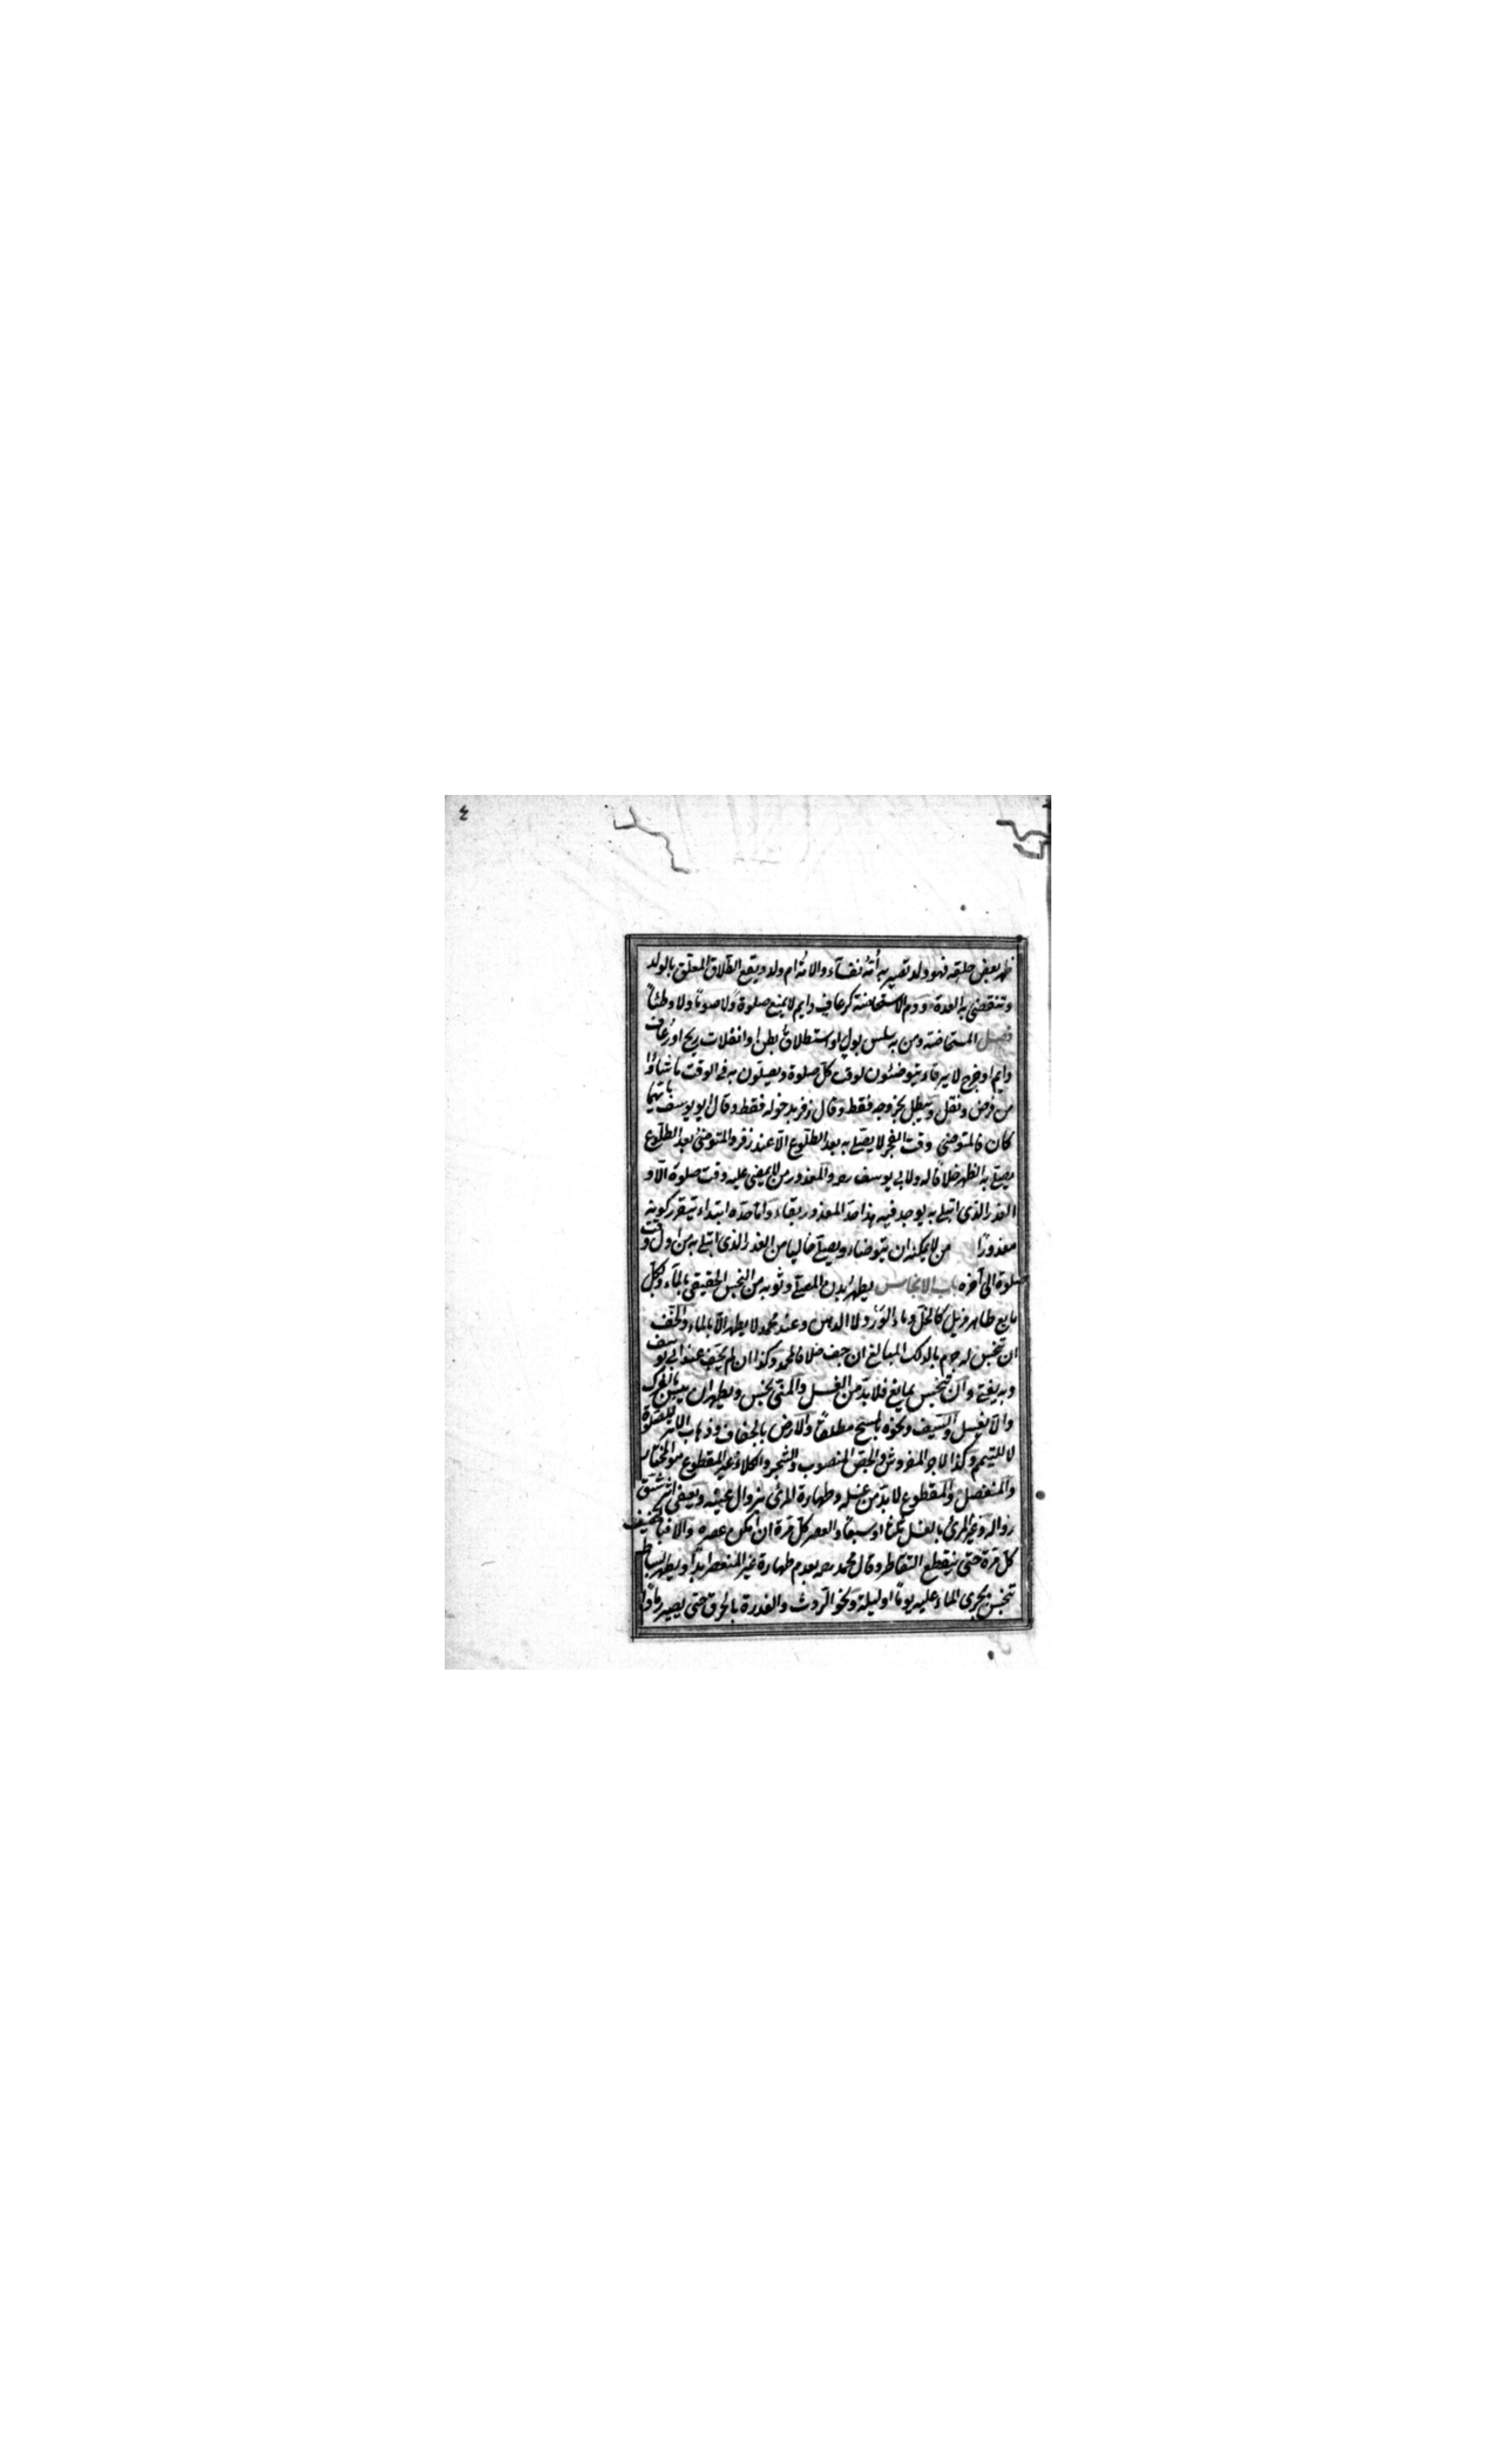 ٤
ظهر بعض خلقه فهو ولد تصير به أمّه نفسآء والامة ام ولد ويقع الطّلاق المعلّق بالولد
وتنقضى به العدة ودم الاستحاضة كرعاف دايم لا يمنع صلوة ولا صوما ولا وطئاً
فصل المستحاضة ومن به سلس بول او استطلاق بطن او انفلات ريح او رعاف
دايم او جرح لا يرقاء يتوضئون لوقت كلّ صلوة ويصلّون به فى الوقت ما شاؤا
من فرض ونفل ويبطل بخروجه فقط وقال زفر بدخوله فقط وقال ابو يوسف بايّهما
كان فالمتوضئ وقت الفجر لا يصلّى به بعد الطّلوع الّا عند زفر والمتوضئ بعد الطلّوع
يصلّى به الظهر خلافا له ولابى يوسف رح والمعذور من لا يمضى عليه وقت صلوة الّا و
العذر الذى ابتلى به يوجد فيه هذا حدّ المعذور بقاء وامّا حدّه ابتداء تيقرر كونه
معذورًا من لا يمكنه ان يتوضاء ويصلّى خاليا من العذر الذى ابتلى به من اول وقت
صلوة الى آخره باب الانجاس يطهر بدن المصلّى وثوبه من النجس الحقيقى بالمآء وبكلّ
مايع طاهر مزيل كالخلّ وماء الورد لا الدهن وعند محمد لا يطهر الّا بالماء والخفّ
ان تنجّس له جرم بالدلك المبالغ ان جفّ خلافا لمحمد وكذا ان لم يجفّ عند ابى يوسف
وبه يفتى وان تنجّس بمايع فلا بدّ من الغسل والمنىّ نجس ويطهر ان يبس بالفرك
والّا يغسل والسّيف ونحوه بالمسح مطلقاً والارض بالجفاف وذهاب الاثر للصّلوة
لا للتيمّم وكذا الاجر المفروش والخصّ المنصوب والشّجر والكلاء غير المقطوع هو المختار
والمنفصل والمقطوع لا بدّ من غسله وطهارة المرئى بزوال عينه ويعفى اثر شقّ
زواله وغير المرئى بالغسل ثلاثا او سبعًا والعصر كلّ مرة ان امكن عصره والّا فبالتجفيف
كلّ مرة حتّى ينقطع التقاطر وقال محمد رح بعدم طهارة غير المنعصر ابدًا ويطهر بساط
تنجّس بجرى الماء عليه يومًا او ليلة ونحو الرّوث والعذرة بالحرق حتى يصير رمادًا